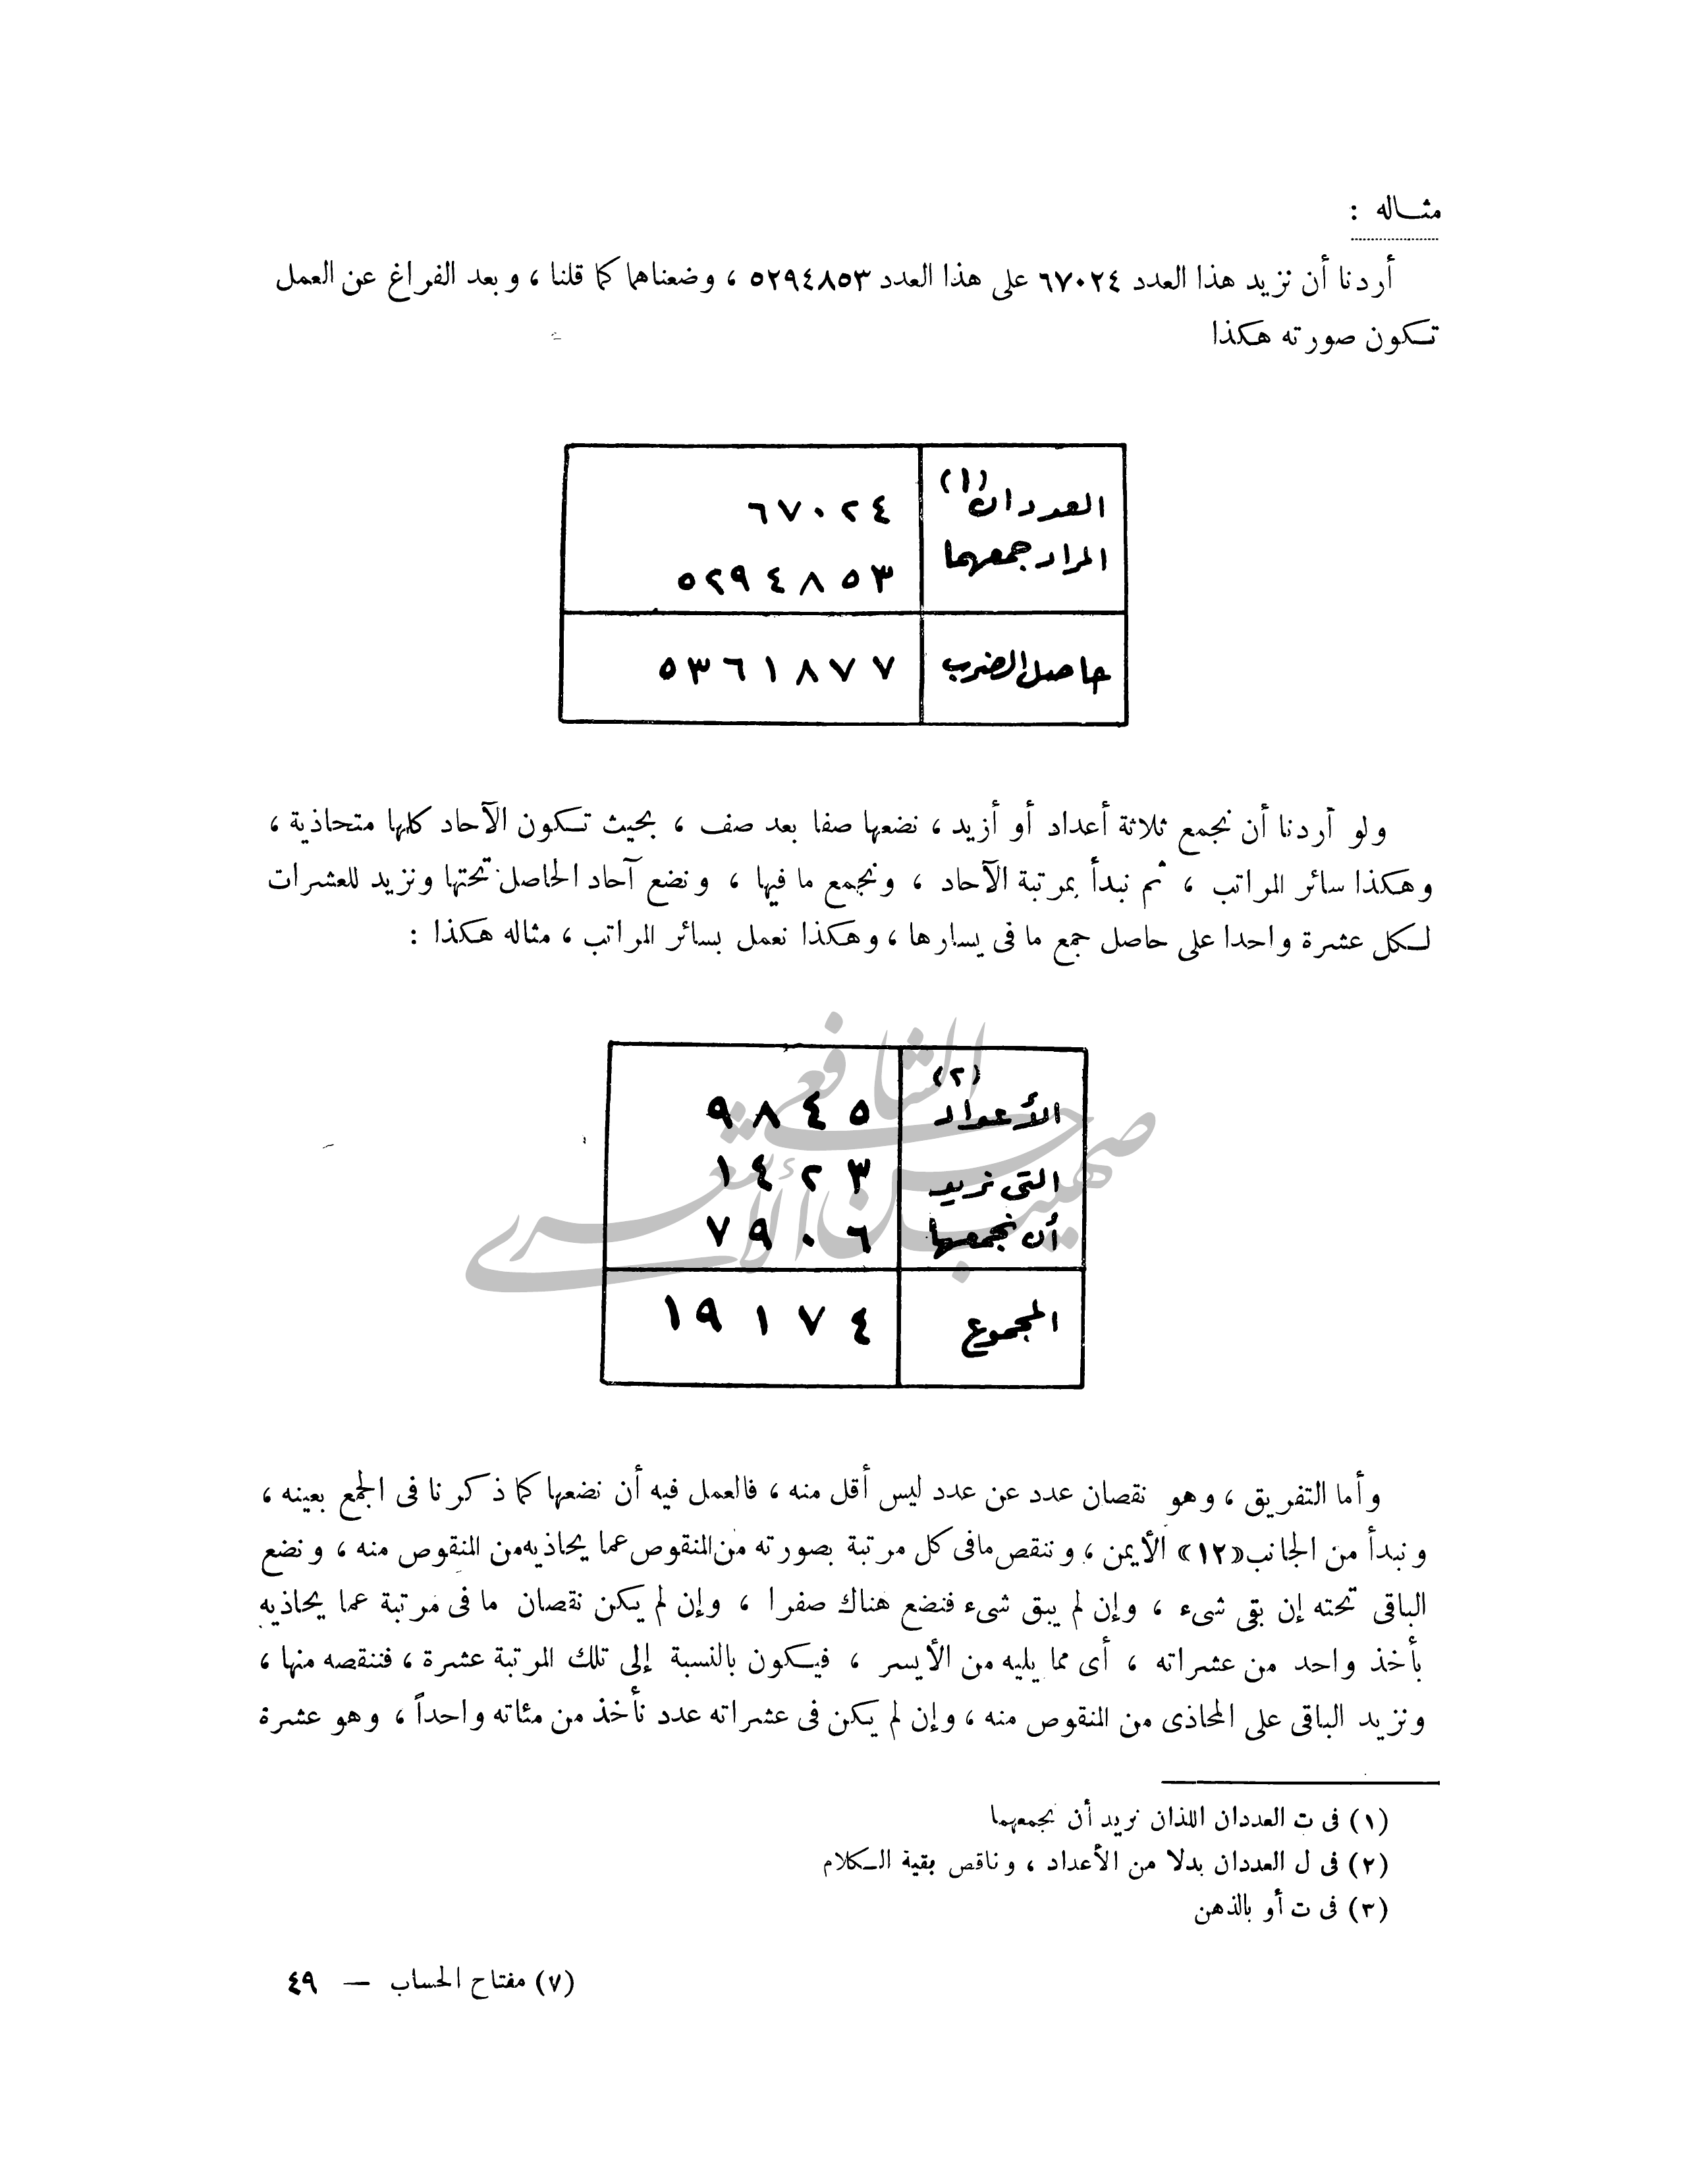 مثاله :
أردنا أن نزيد هذا العدد ٦٧٠٢٤ على هذا العدد ٥٢٩٤٨٥٣ ، وضعناهما كما قلنا ، وبعد الفراغ عن العمل
تكون صورته هكذا
العددان (١) ٦٧٠٢٤
المراد جمعهما ٥٢٩٤٨٥٣
حاصل الضرب ٥٣٦١٨٧٧
ولو أردنا أن نجمع ثلاثة أعداد أو أزيد ، نضعها صفا بعد صف ، بحيث تكون الآحاد كلها متحاذية ،
وهكذا سائر المراتب ، ثم نبدأ بمرتبة الآحاد ، ونجمع ما فيها ، ونضع آحاد الحاصل تحتها ونزيد للعشرات
لكل عشرة واحدا على حاصل جمع ما فى يسارها ، وهكذا نعمل بسائر المراتب ، مثاله هكذا :
(٢)
الأعداد ٩٨٤٥
التى نريد ١٤٢٣
أن نجمعها ٧٩٠٦
المجموع ١٩١٧٤
صهيب حسن الشافعي الأشعري
وأما التفريق ، وهو نقصان عدد عن عدد ليس أقل منه ، فالعمل فيه أن نضعها كما ذكرنا فى الجمع بعينه ،
ونبدأ من الجانب «١٢» الأيمن ، وننقص مافى كل مرتبة بصورته من المنقوص عما يحاذيه من المنقوص منه ، ونضع
الباقى تحته إن بقى شىء ، وإن لم يبق شىء فنضع هناك صفرا ، وإن لم يكن نقصان ما فى مرتبة عما يحاذيه
بأخذ واحد من عشراته ، أى مما يليه من الأيسر ، فيكون بالنسبة إلى تلك المرتبة عشرة ، فننقصه منها ،
ونزيد الباقى على المحاذى من المنقوص منه ، وإن لم يكن فى عشراته عدد نأخذ من مئاته واحداً ، وهو عشرة
(١) فى ت العددان اللذان نريد أن نجمعهما
(٢) فى ل العددان بدلا من الأعداد ، وناقص بقية الكلام
(٣) فى ت أو بالذهن
(٧) مفتاح الحساب — ٤٩